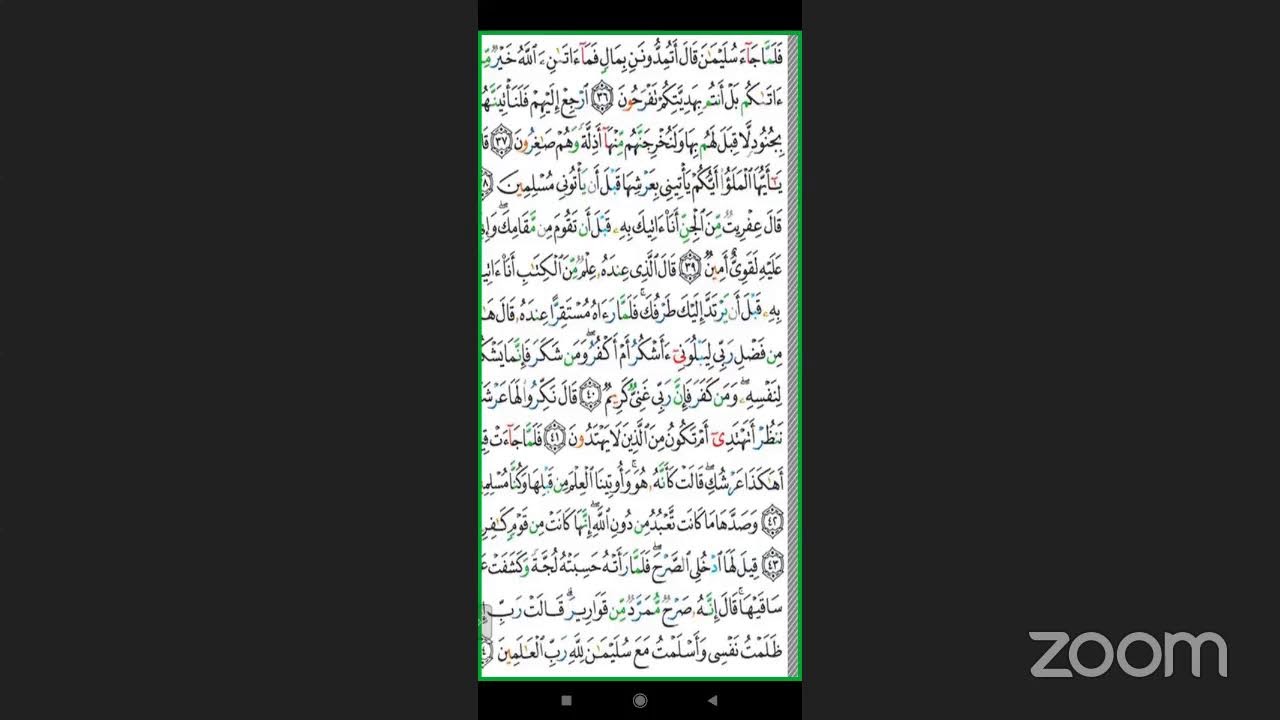 فَلَمَّا جَآءَ سُلَيْمَـٰنَ قَالَ أَتُمِدُّونَنِ بِمَالٍ فَمَآ ءَاتَىٰنِۦَ ٱللَّهُ خَيْرٌ
ءَاتَىٰكُم بَلْ أَنتُم بِهَدِيَّتِكُمْ تَفْرَحُونَ ٣٦ ٱرْجِعْ إِلَيْهِمْ فَلَنَأْتِيَنَّهُ
بِجُنُودٍ لَّا قِبَلَ لَهُم بِهَا وَلَنُخْرِجَنَّهُم مِّنْهَآ أَذِلَّةً وَهُمْ صَـٰغِرُونَ ٣٧ قَا
يَـٰٓأَيُّهَا ٱلْمَلَؤُا۟ أَيُّكُمْ يَأْتِينِى بِعَرْشِهَا قَبْلَ أَن يَأْتُونِى مُسْلِمِينَ ٨
قَالَ عِفْرِيتٌ مِّنَ ٱلْجِنِّ أَنَا۠ ءَاتِيكَ بِهِۦ قَبْلَ أَن تَقُومَ مِن مَّقَامِكَ ۖ وَإِ
عَلَيْهِ لَقَوِىٌّ أَمِينٌ ٣٩ قَالَ ٱلَّذِى عِندَهُۥ عِلْمٌ مِّنَ ٱلْكِتَـٰبِ أَنَا۠ ءَاتِي
بِهِۦ قَبْلَ أَن يَرْتَدَّ إِلَيْكَ طَرْفُكَ ۚ فَلَمَّا رَءَاهُ مُسْتَقِرًّا عِندَهُۥ قَالَ هَـٰ
مِن فَضْلِ رَبِّى لِيَبْلُوَنِىٓ ءَأَشْكُرُ أَمْ أَكْفُرُ ۖ وَمَن شَكَرَ فَإِنَّمَا يَشْكُ
لِنَفْسِهِۦ ۖ وَمَن كَفَرَ فَإِنَّ رَبِّى غَنِىٌّ كَرِيمٌ ٤٠ قَالَ نَكِّرُوا۟ لَهَا عَرْشَ
نَنظُرْ أَتَهْتَدِىٓ أَمْ تَكُونُ مِنَ ٱلَّذِينَ لَا يَهْتَدُونَ ٤١ فَلَمَّا جَآءَتْ قِي
أَهَـٰكَذَا عَرْشُكِ ۖ قَالَتْ كَأَنَّهُۥ هُوَ ۚ وَأُوتِينَا ٱلْعِلْمَ مِن قَبْلِهَا وَكُنَّا مُسْلِمِي
٤٢ وَصَدَّهَا مَا كَانَت تَّعْبُدُ مِن دُونِ ٱللَّهِ ۖ إِنَّهَا كَانَتْ مِن قَوْمٍ كَـٰفِرِ
٤٣ قِيلَ لَهَا ٱدْخُلِى ٱلصَّرْحَ ۖ فَلَمَّا رَأَتْهُ حَسِبَتْهُ لُجَّةً وَكَشَفَتْ عَ
سَاقَيْهَا ۚ قَالَ إِنَّهُۥ صَرْحٌ مُّمَرَّدٌ مِّن قَوَارِيرَ ۗ قَالَتْ رَبِّ إِ
ظَلَمْتُ نَفْسِى وَأَسْلَمْتُ مَعَ سُلَيْمَـٰنَ لِلَّهِ رَبِّ ٱلْعَـٰلَمِينَ
zoom